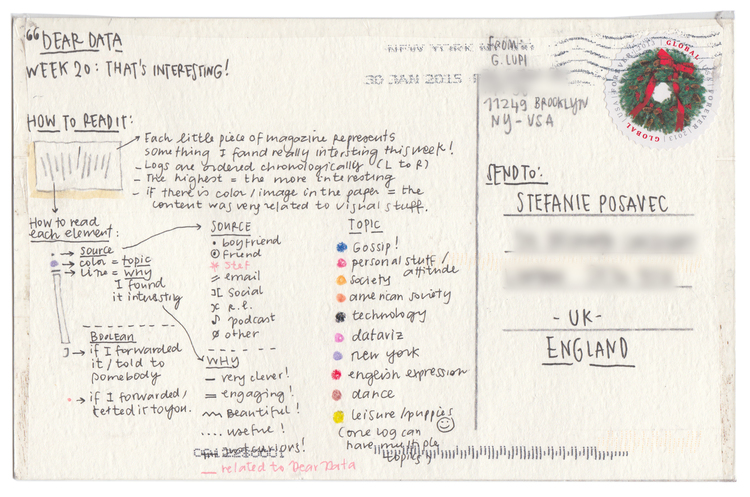 “DEAR DATA
WEEK 20: THAT'S INTERESTING!
HOW TO READ IT:
Each little piece of magazine represents
something I found really intersting this week!
- Logs are ordered chronologically (L to R)
- The highest = the more interesting
- if there is color / image in the paper = the
content was very related to visual stuff.
How to read
each element:
source
color = topic
line = why
I found
it interesting
Boolean
if I forwarded
it / told to
somebody
if I forwarded /
texted it to you.
SOURCE
boyfriend
friend
Stef
email
Social
R.L.
podcast
other
WHY
very clever!
engaging!
Beautiful!
useful!
related to Dear Data
TOPIC
Gossip!
personal stuff /
attitude
society
american society
technology
dataviz
new york
english expression
dance
leisure / puppies
(one log can
have multiple
topics)
NEW YORK
30 JAN 2015
FROM:
G. LUPI
11249 BROOKLYN
NY - USA
GLOBAL
FOREVER
GLOBAL
SEND TO:
STEFANIE POSAVEC
- UK -
ENGLAND